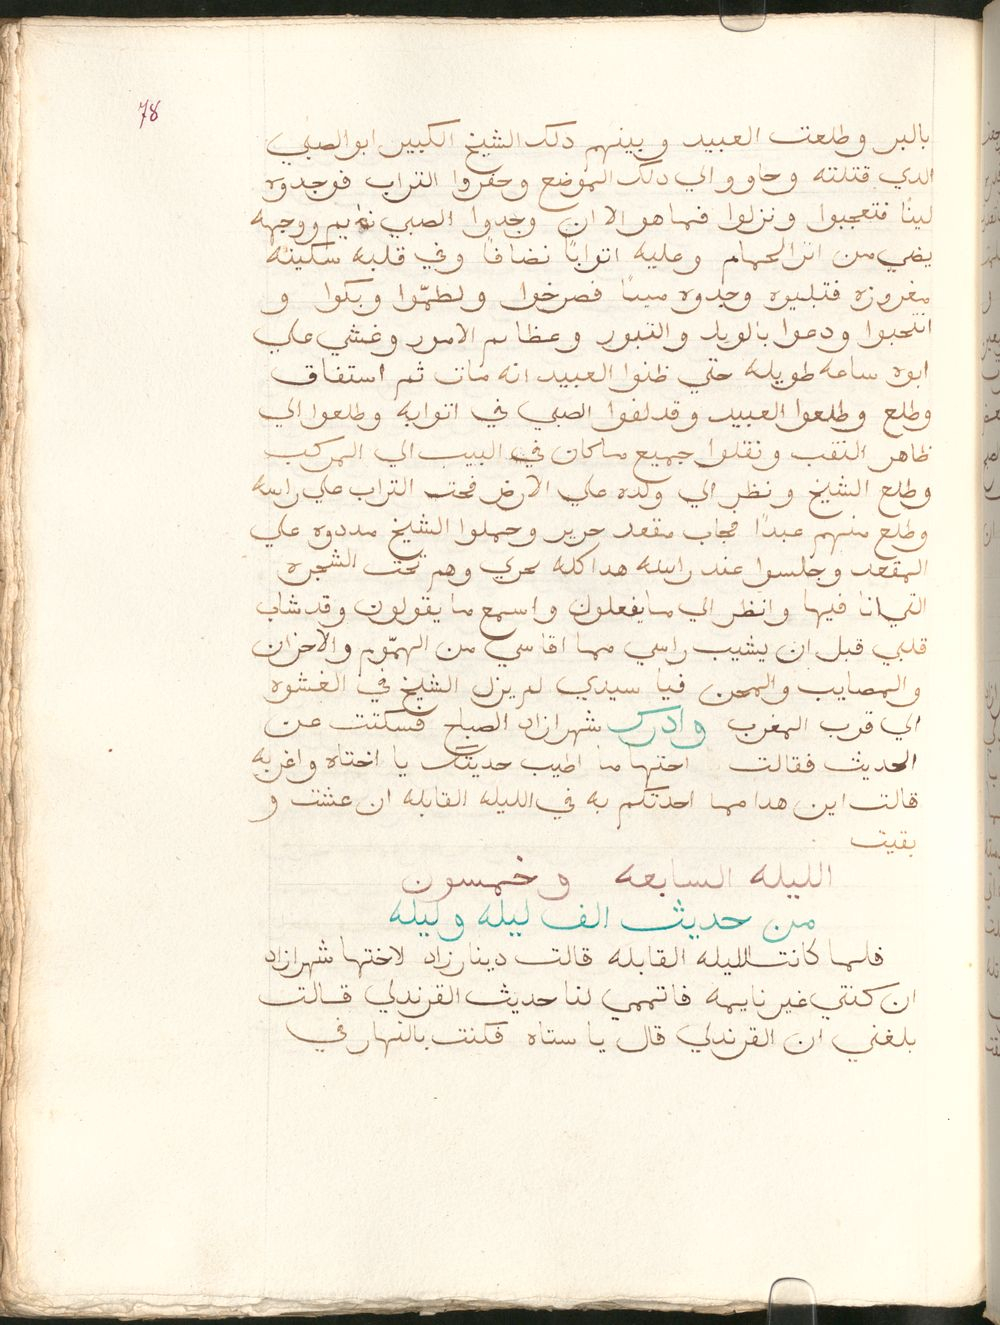 78
بالبر وطلعت العبيد وبينهم دلك الشيخ الكبير ابو الصبي
الدي قتلته وجاو والي دلك الموضع وحفروا التراب فوجدوه
لينًا فتعجبوا ونزلوا فماهو الا ان وجدوا الصبي نايم ووجهه
يضي من اثر الحمام وعليه اتوابًا نضافًا وفي قلبه سكينه
مغروزه فتلبوه وجدوه ميتًا فصرخوا ولطمّوا وبكوا و
انتحبوا ودعوا بالويل والتبور وعظايم الامور وغشي علي
ابوه ساعه طويله حتي ظنوا العبيد انه مات ثم استفاق
وطلع وطلعوا العبيد وقد لفوا الصبي في اتوابه وطلعوا الي
ظاهر النقب ونقلوا جميع ماكان في البيت الي المركب
وطلع الشيخ ونظر الي ولده علي الارض فحت التراب علي راسه
وطلع منهم عبدًا فجاب مقعد حرير وحملوا الشيخ مددوه علي
المقعد وجلسوا عند راسه هداكله يجري وهم تحت الشجره
التي انا فيها وانظر الي ما يفعلون واسمع ما يقولون وقد شاب
قلبي قبل ان يشيب راسي مما اقاسي من الهمّوم والاحزان
والمصايب والمحن فيا سيدي لم يزل الشيخ في الغشوه
الي قرب المغرب وادرك شهرازاد الصباح فسكتت عن
الحديث فقالت اختها ما اطيب حديتك يا اختاه واغربه
قالت اين هدا مما احدتكم به في الليله القابله ان عشت و
بقيت
الليله السابعه وخمسون
من حديث الف ليله وليله
فلما كانت الليله القابله قالت دينارزاد لاختها شهرازاد
ان كنتي غير نايمه فاتممي لنا حديث القرندلي قالت
بلغني ان القرندلي قال يا ستاه فكنت بالنهار في